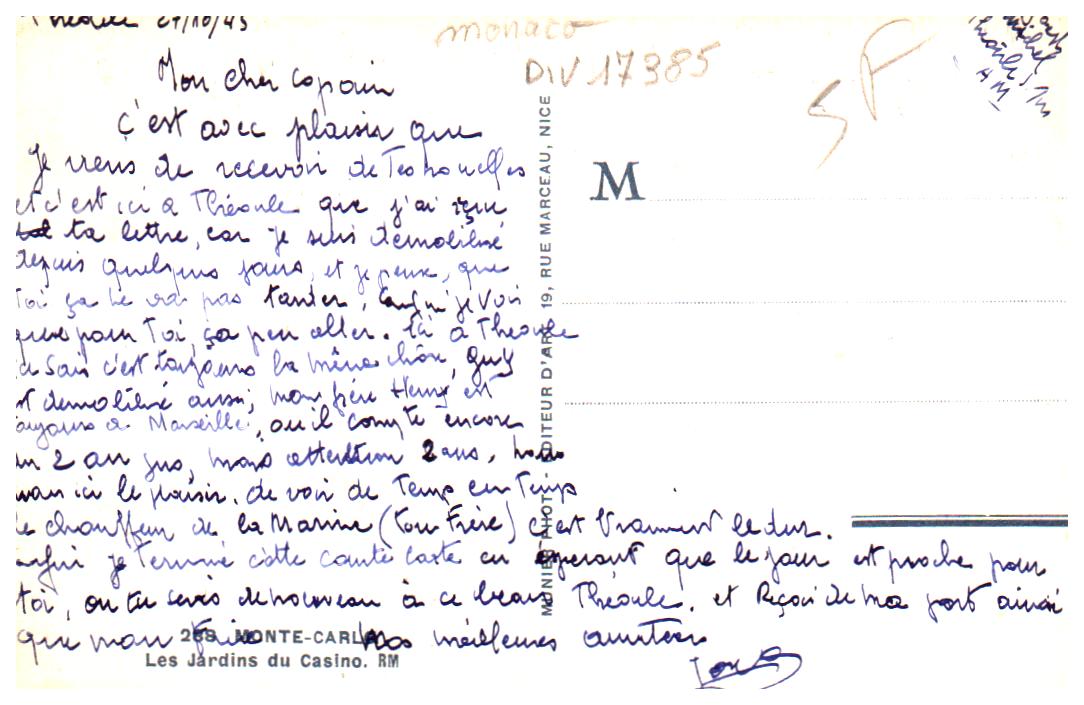 Théoule 27/10/45
monaco
DIV 17385
Mon cher copain
c'est avec plaisir que
Je viens de recevoir de Tes nouelles
et c'est ici a Théoule que j'ai reçu
ta lettre, car je suis démobilisé
depuis quelques jours, et je pense, que
Toi ça ne va pas tarder, je Vois
que pour Toi, ça peu aller. Ici a Théoule
tu Sais c'est toujours la même chose, Guy
est démobilisé aussi, mon frère Henry est
toujours a Marseille, ou il compte encore
un 2 an, mais attention 2 ans, nous
avons ici le plaisir, de voir de Temps en Temps
le chauffeur de la Marine (ton Frère) c'est Vraiment le dur.
enfin je Termine cette carte en espérant que le jour est proche pour
toi, ou tu seras de nouveau à ce beau Théoule, et Reçois de ma part ainsi
que mon frère Nos meilleures amitiés
M
MUNIER PHOT. ÉDITEUR D'ART 19, RUE MARCEAU, NICE
288 MONTE-CARLO
Les Jardins du Casino. RM